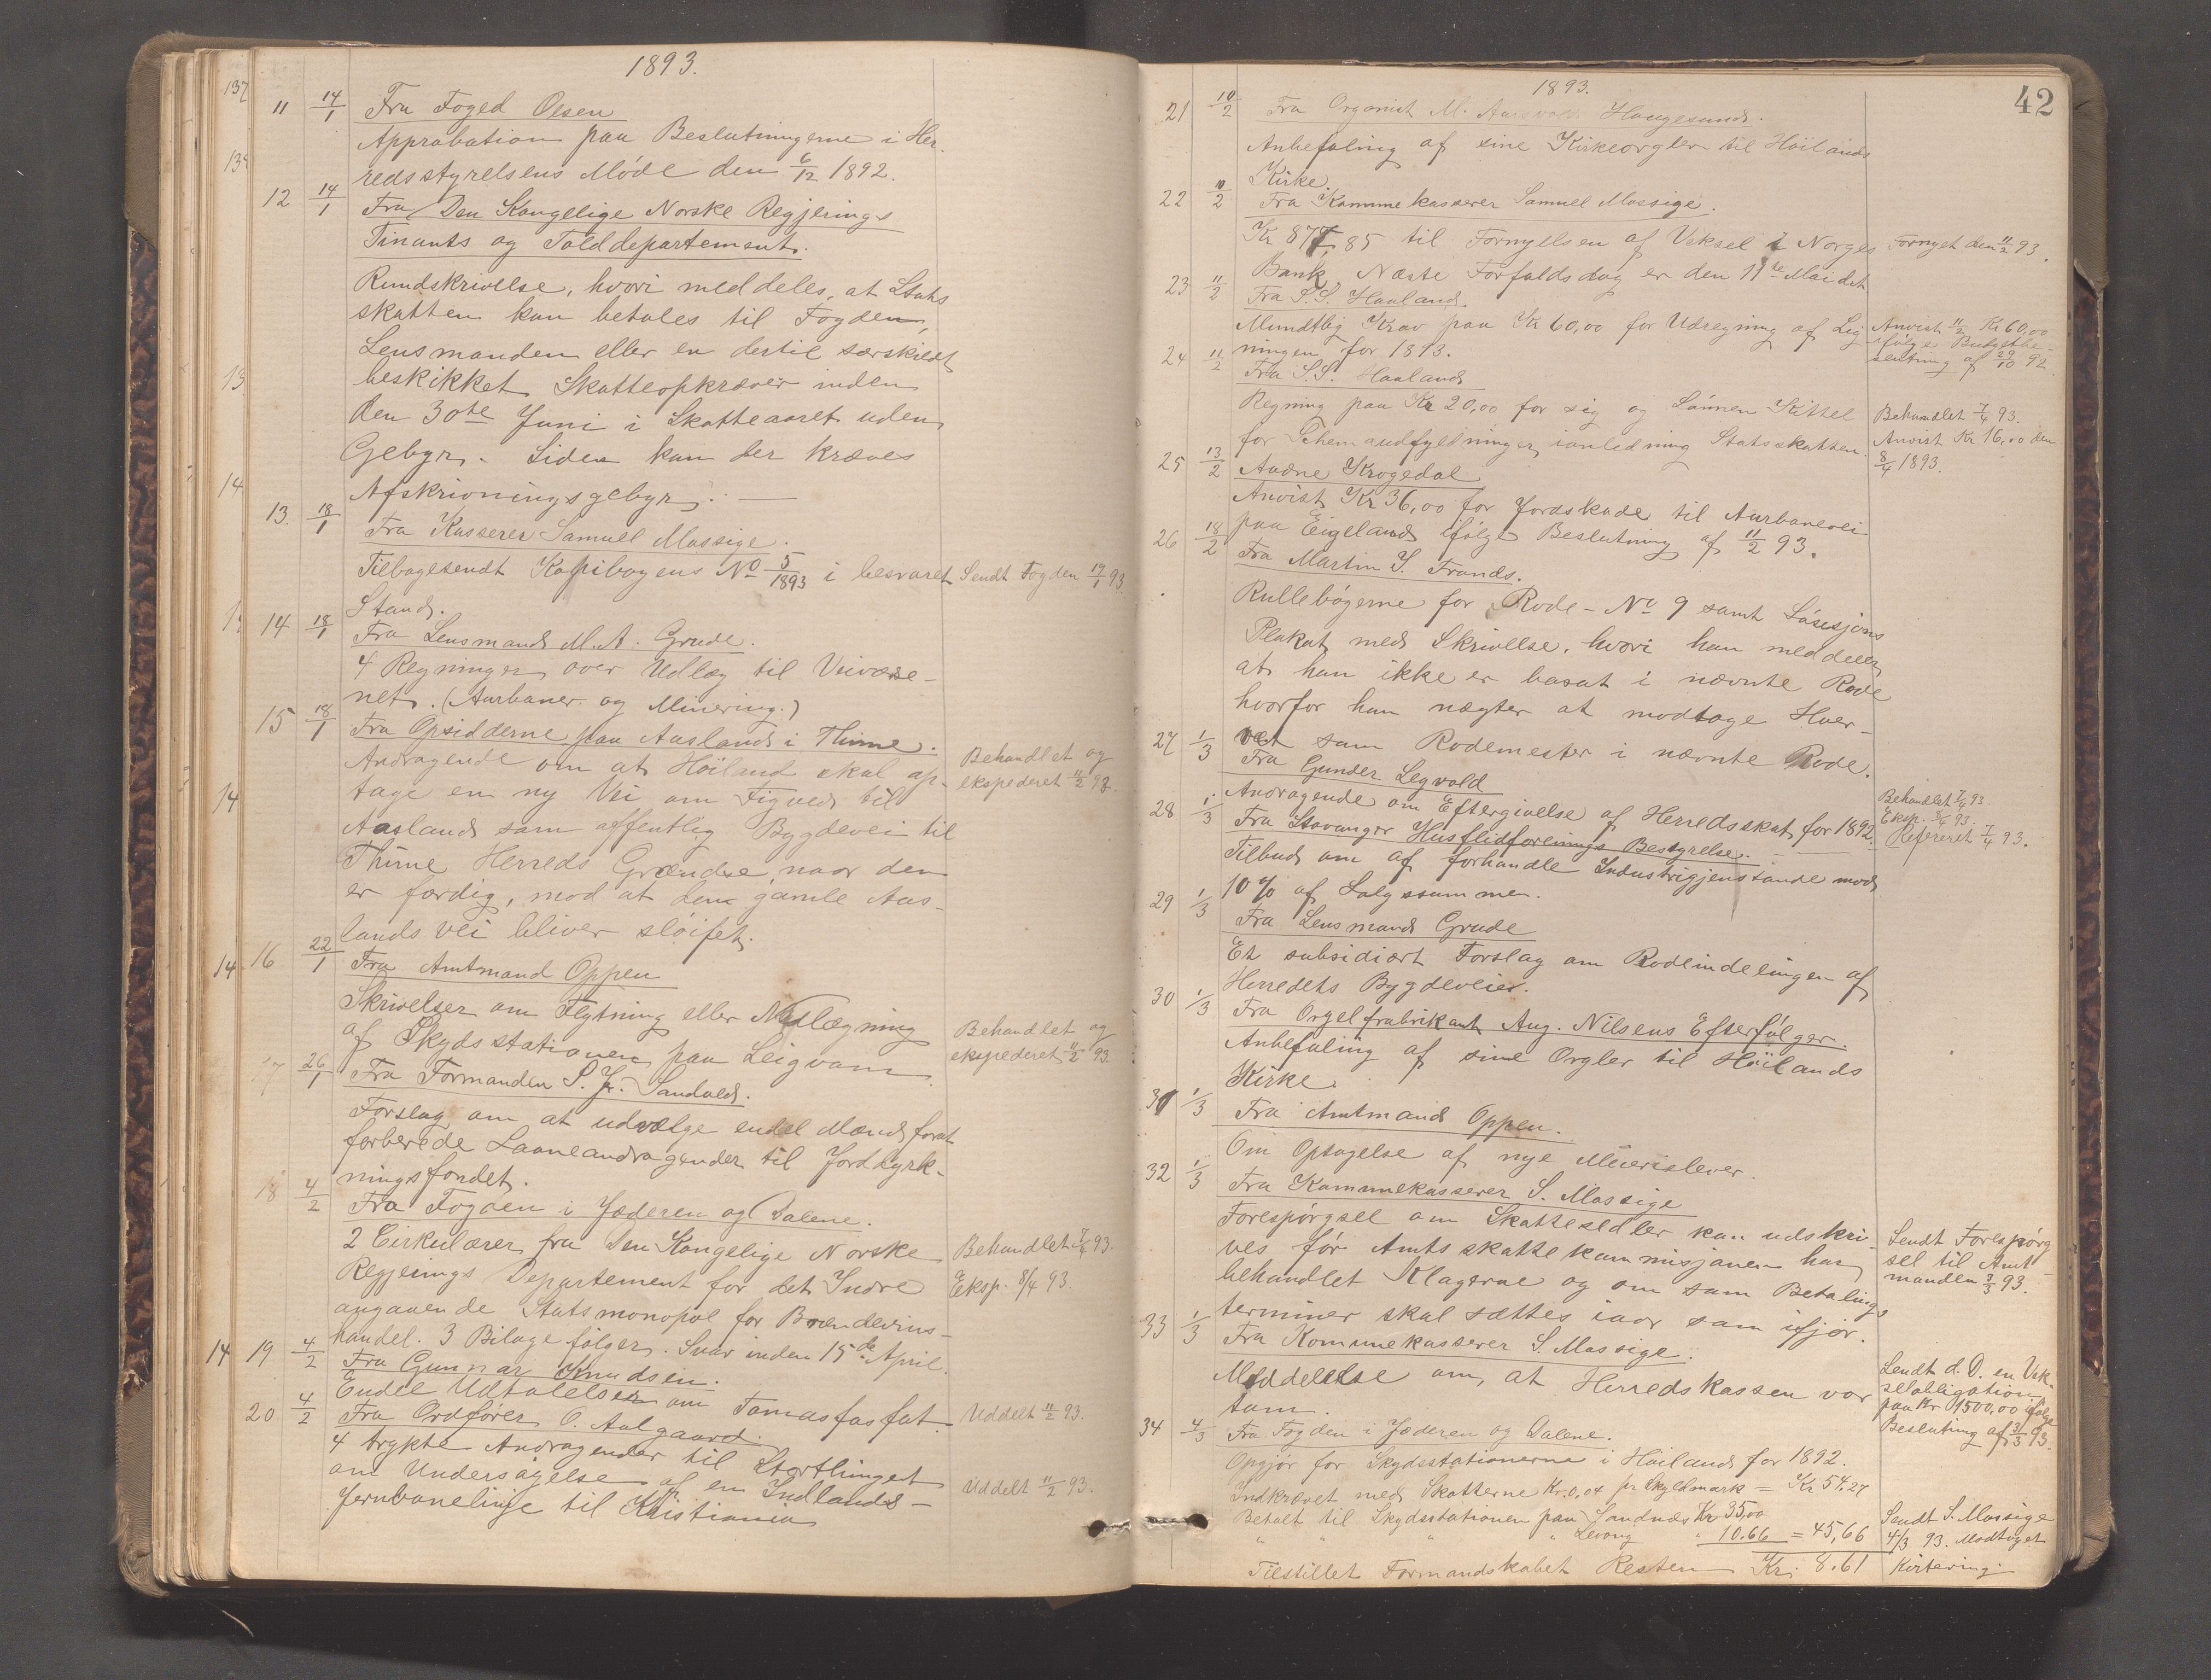 1893.
11 14/1 Fra Foged Olsen
Approbation paa Beslutningerne i Her-
redsstyrelsens Møde den 6/12 1892.
12 14/1 Fra Den Kongelige Norske Regjerings
Finants og Tolddepartement.
Rundskrivelse, hvori meddeles, at Stats
skatten kan betales til Fogden,
Lensmanden eller en dertil særskildt
beskikket Skatteopkræver inden
den 30te Juni i Skatteaaret uden
Gebyr. Siden kan der kræves
Afskrivningsgebyr. —
13. 18/1 Fra Kasserer Samuel Mossige.
Tilbagesendt Kopibogens No 5/1893 i besvaret Sendt Fogden 19/1 93.
Stand.
14 18/1 Fra Lensmand M. A. Grude.
4 Regninger over Udlæg til Veivæse-
net. (Aurbaner og Minering.)
15 18/1 Fra Opsidderne paa Aasland i Thime.
Andragende om at Höiland skal op- Behandlet og
tage en ny Vei om Figved til ekspederet 11/2 93.
Aasland som offentlig Bygdevei til
Thime Herreds Grændse naar den
er færdig, mod at den gamle Aas-
lands vei bliver sløifet.
16 22/1 Fra Amtmand Oppen
Skrivelser om Flytning eller Nedlægning
af Skydsstationen paa Leigvam Behandlet og
ekspederet 11/2 93.
17 26/1 Fra Formanden S. Jr. Sandvold.
Forslag om at udvælge endel Mænd forat
forberede Laaneandragender til Jorddyrk-
ningsfondet.
18 4/2 Fra Fogden i Jæderen og Dalene.
2 Cirkulærer fra Den Kongelige Norske Behandlet 7/4 93.
Regjerings Departement for det Indre Eksp. 8/4 93.
angaaende Statsmonopol for Brændevins-
handel. 3 Bilage følger. Svar inden 15de April.
19 4/2 Fra Gunnar Knudsen.
Endel Udtalelser om Tomasfosfat. Uddelt 11/2 93.
20 4/2 Fra Ordfører O. Aalgaard.
4 trykte Andragender til Storthinget
om Undersøgelse af en Indlands- Uddelt 11/2 93.
Jernbanelinje til Kristiania
42
1893.
21 10/2 Fra Organist M. Haugesund.
Anbefaling af sine Kirkeorgler til Höilands
Kirke
22 10/2 Fra Kommunekasserer Samuel Mossige.
Kr 877,85 til Fornyelsen af Veksel i Norges Fornyet den 11/2 93.
Bank Næste Forfaldsdag er den 11te Mai det
23 11/2 Fra S. S. Haaland.
Mundtlig Krav paa Kr 60,00 for Udregning af Lig- Anvist 11/2 Kr 60,00
ningen for 1893. ifølge Budgetbe-
slutning af 29/10 92.
24 11/2 Fra S. S. Haaland
Regning paa Kr 20,00 for sig og Sønnen Kittel Behandlet 7/4 93.
for Schemaudfyldninger ianledning Statsskatten. Anvist Kr 16,00 den
8/4 1893.
25 13/2 Audne Krogedal
Anvist Kr 36,00 for Jordskade til Aurbanevei
paa Eigeland ifølge Beslutning af 11/2 93.
26 18/2 Fra Martin T. Frands.
Rullebøgerne for Rode - No 9 samt Løsisjons
Plakat med Skrivelse, hvori han meddeler
at han ikke er bosat i nævnte Rode
hvorfor han nægter at modtage Hver-
vet som Rodemester i nævnte Rode.
27 1/3 Fra Gunder Legvold
Andragende om Eftergivelse af Herredsskat for 1892. Behandlet 7/4 93.
Eksp. 8/4 93.
28 1/3 Fra Stavanger Husflidforenings Bestyrelse. Refereret 7/4 93.
Tilbud om at forhandle Industrigjenstande mod
10% af Salgssummen.
29 1/3 Fra Lensmand Grude
Et subsidiært Forslag om Rodeindelingen af
Herredets Bygdeveier.
30 1/3 Fra Orgelfabrikant Aug. Nilsens Efterfølger.
Anbefaling af sine Orgler til Höilands
Kirke.
31 1/3 Fra Amtmand Oppen.
Om Optagelse af nye Meierielever.
32 1/3 Fra Kommunekasserer S. Mossige
Forespørgsel om Skattesedler kan udskri- Sendt Forespørg
ves før Amtsskattekommisjonen har sel til Amt-
behandlet Klagerne og om som Betalings manden 3/3 93.
terminer skal sættes iaar som ifjor.
33 1/3 Fra Kommunekasserer S. Mossige.
Meddelelse om, at Herredskassen var Sendt d. O. en Vek-
tom. selobligation
paa Kr 1500,00 ifølge
Beslutning af 31/3 93.
34 4/3 Fra Fogden i Jæderen og Dalene.
Opgjør for Skydsstationerne i Höiland for 1892.
Indkrævet med Skatterne Kr. 0,04 pr Skyldmark = Kr 54.27
Betalt til Skydsstationen paa Sandnæs Kr 35,00 Sendt S. Mossige
" " " " " 10.66 = 45,66 4/3 93. Modtoget
Tilstillet Formandskabet Resten Kr. 8.61 Kvitering